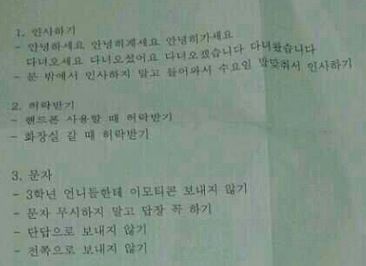 1. 인사하기
- 안녕하세요 안녕히계세요 안녕히가세요
다녀오세요 다녀오셨어요 다녀오겠습니다 다녀왔습니다
- 문 밖에서 인사하지 말고 들어와서 수요인 말맞춰서 인사하기
2. 허락받기
- 핸드폰 사용할 때 허락받기
- 화장실 갈 때 허락받기
3. 문자
- 3학년 언니들한테 이모티콘 보내지 않기
- 문자 무시하지 말고 답장 꼭 하기
- 단답으로 보내지 않기
- 전쪽으로 보내지 않기